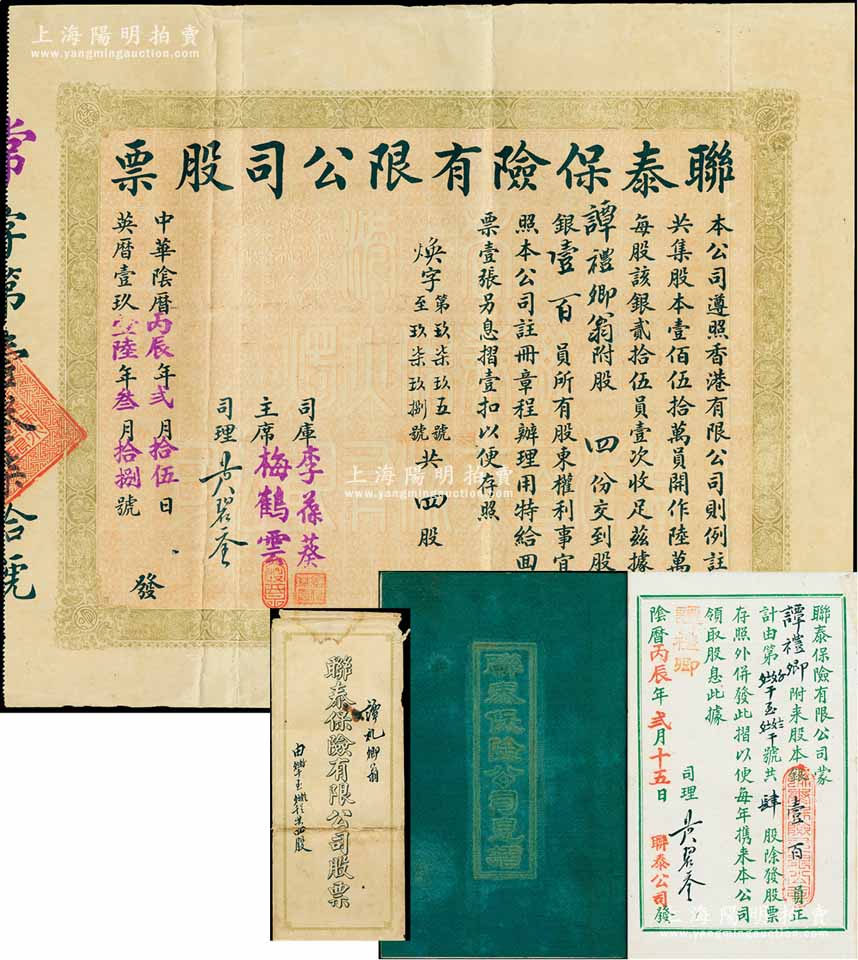 上海陽明拍賣
www.yangmingauction.com
聯泰保險有限公司股票
本公司遵照香港有限公司則例註
共集股本壹佰伍拾萬員開作陸萬
每股該銀貳拾伍員壹次收足茲據
譚禮卿翁附股四份交到股
銀壹百員所有股東權利事宜
照本公司註冊章程辦理用特給回
票壹張另息摺壹扣以便存照
煥字第玖柒玖五號
至玖柒玖捌號共四股
司庫李葆葵
主席梅鶴雲
司理
中華陰曆丙辰年弍月拾伍日
英曆壹玖壹陸年叁月拾捌號
發
常字第
拾號
上海陽明拍賣
www.yangmingauction.com
譚礼卿翁
聯泰保險有限公司股票
聯泰保險公司息摺
聯泰保險有限公司蒙
譚禮卿附来股本銀壹百員正
計由第
號共肆股除發股票
存照外併發此摺以便每年携来本公司
領取股息此據
譚禮卿
司理
陰曆丙辰年弍月十五日
聯泰公司發
上海陽明拍賣
www.yangmingauction.com